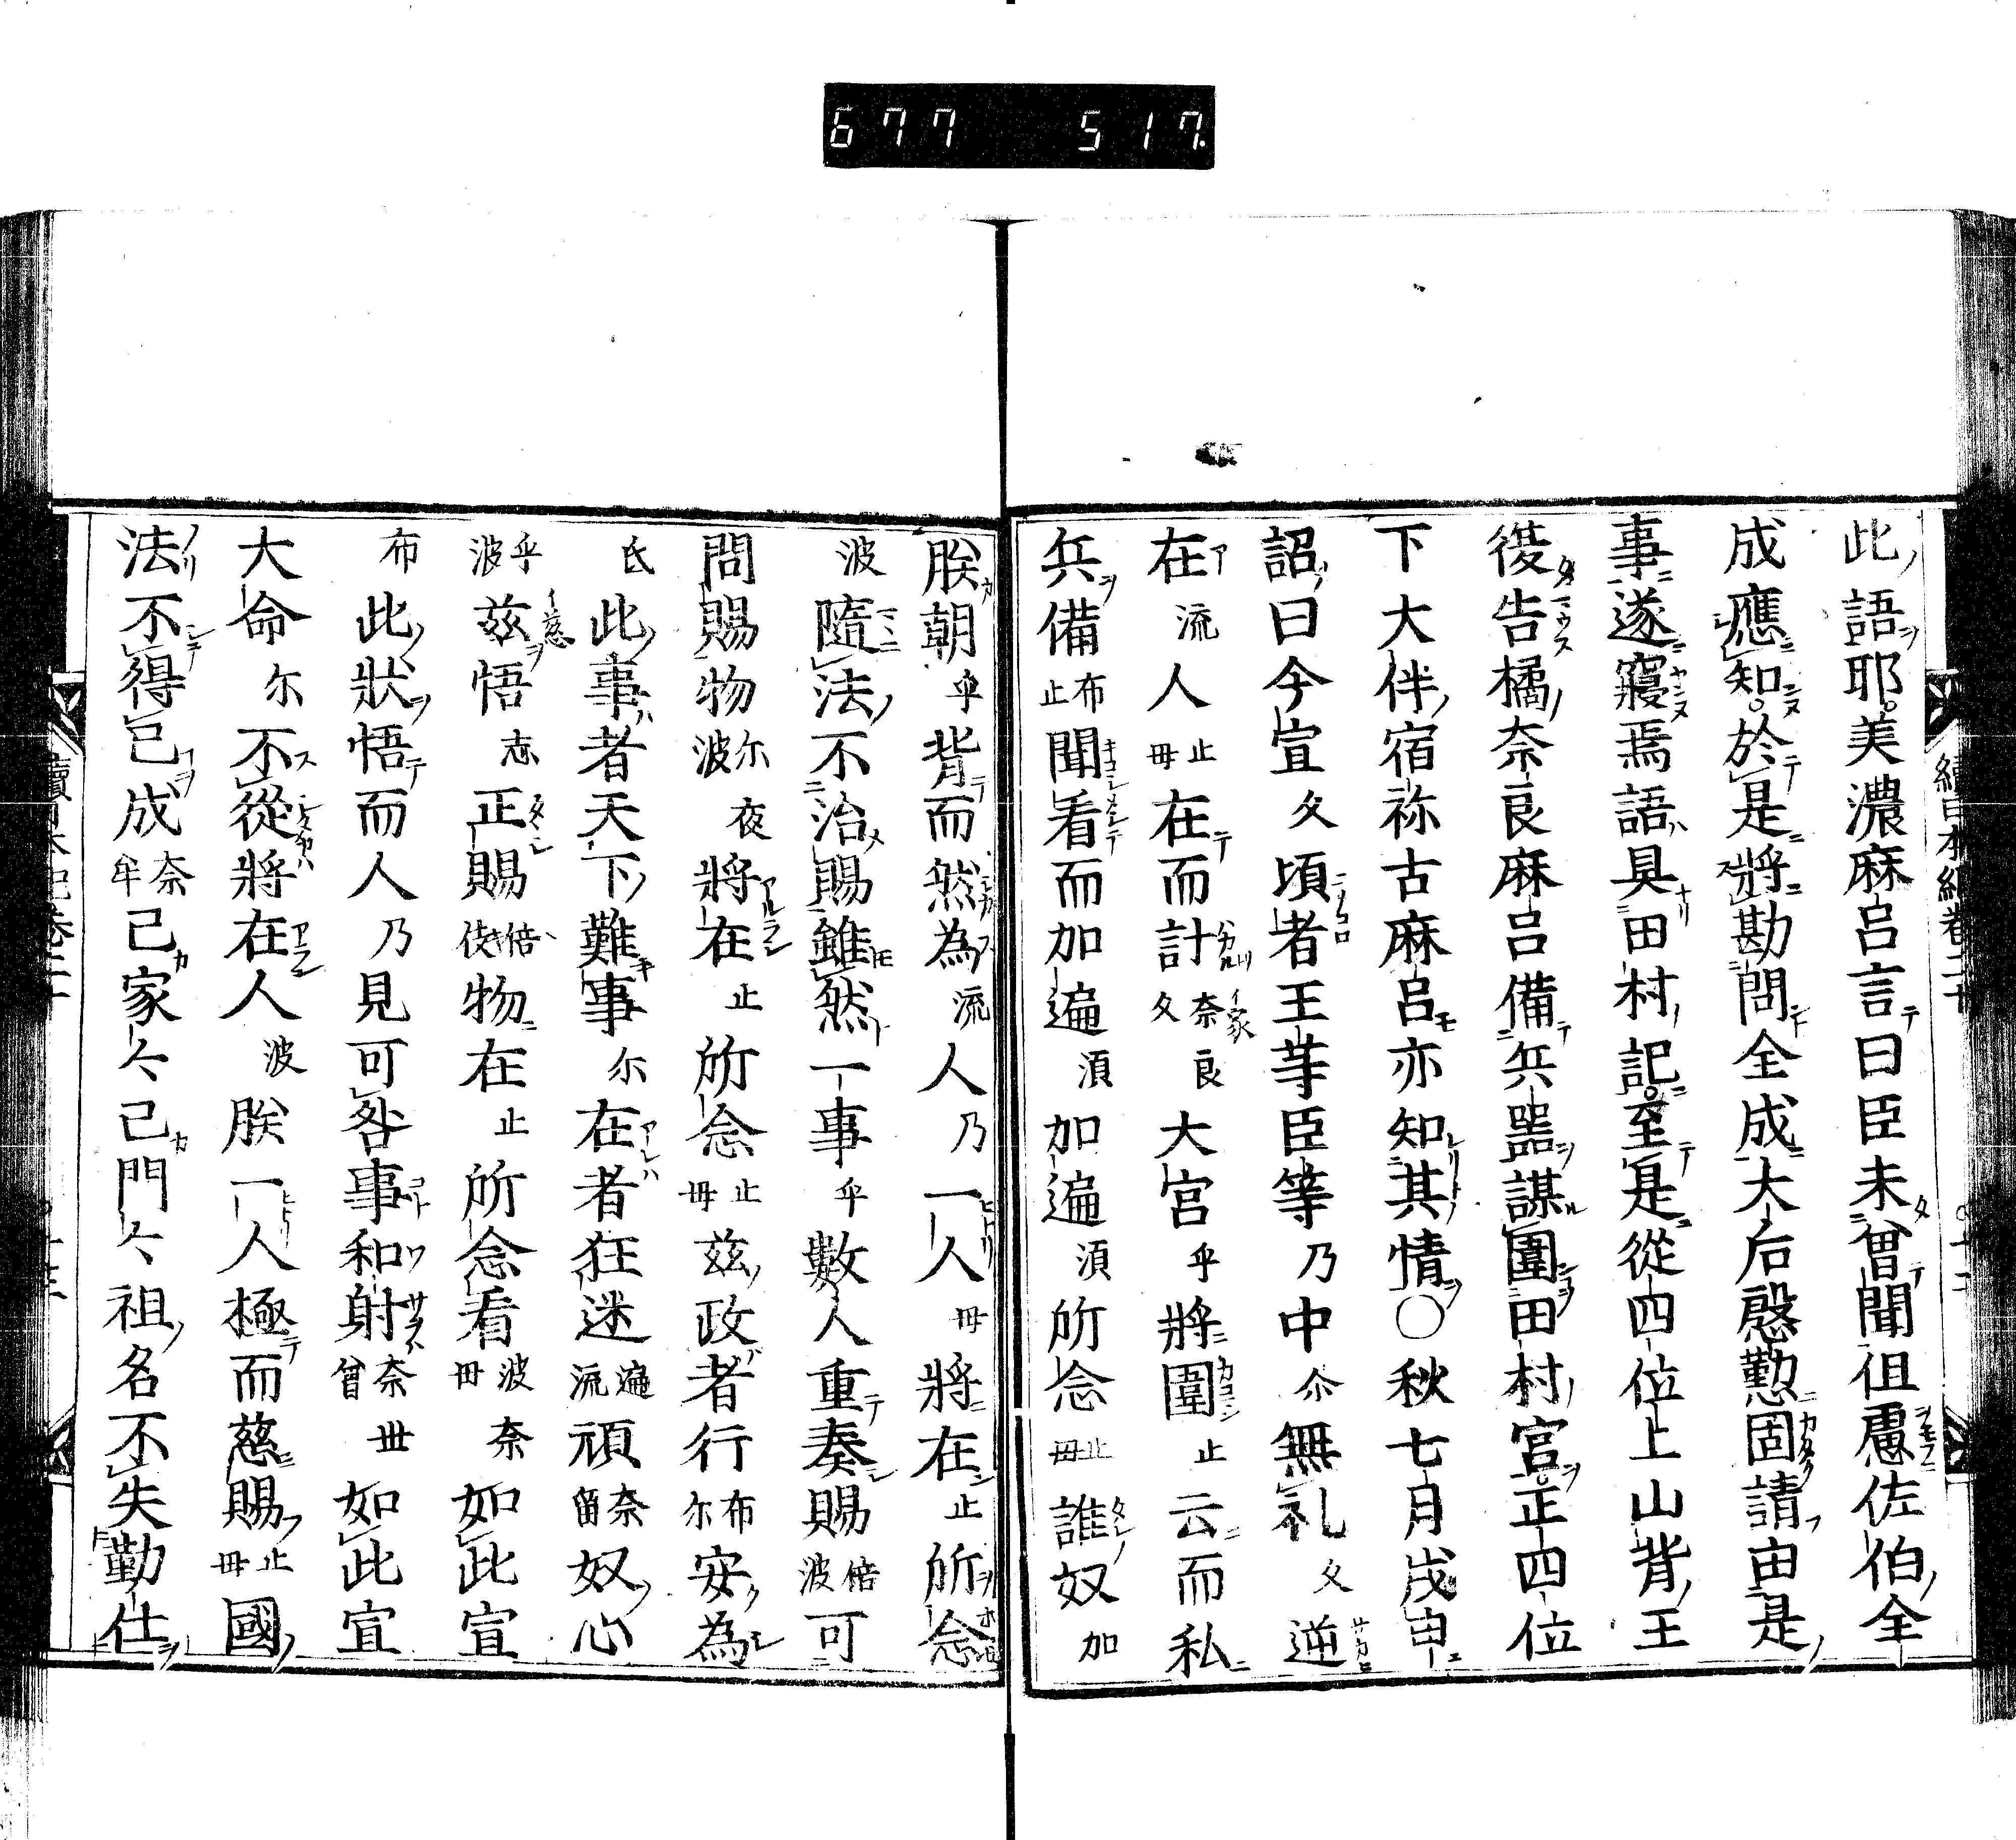 677 517.
此語耶。美濃麻呂言曰臣未曽聞但慮佐伯全
成應知。於是將勘問全成大后慇懃固請由是
事遂寢焉語具田村記。至是從四位上山背王
復告橘奈良麻呂備兵器謀圍田村宮。正四位
下大伴宿祢古麻呂亦知其情○秋七月戊申
詔曰今宣久頃者王等臣等乃中尓無礼久逆
在流人止毋在而計家奈良久大宮乎將圍止云而私
兵備布止聞看而加遍須加遍須所念止毋誰奴加
朕朝乎背而然為流人乃一人毋將在止所念
波隨法不治賜雖然一事乎數人重奏賜倍波可
問賜物尓波夜將在止所念止毋玆政者行布尓安為
氐此事者天下難事尓在者狂迷遍流頑奈留奴心
乎波玆悟志正賜倍伎物在止所念看波毋奈如此宣
布此狀悟而人乃見可咎事和射奈曽世如此宣
大命尓不從將在人波朕一人極而慈賜止毋國
法不得已成奈牟己家々己門々祖名不失勤仕